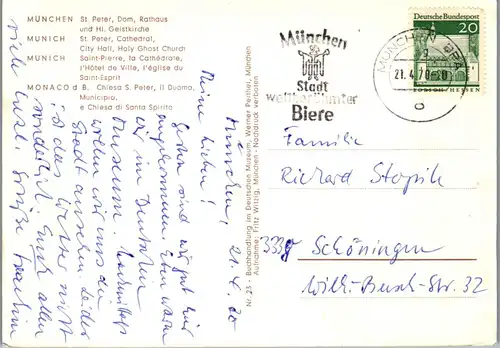 MÜNCHEN St. Peter, Dom, Rathaus
und Hl. Geistkirche
MUNICH St. Peter, Cathedral,
City Hall, Holy Ghost Church
MUNICH Saint-Pierre, la Cathédrale,
l'Hôtel de Ville, l'église du
Saint-Esprit
MONACO d B. Chiesa S. Peter, il Duomo,
Municipio,
e Chiesa di Santa Spirito
München, 21. 4. 70
Meine Lieben!
Gestern sind wir gut hier
angekommen. Eben waren
wir im Deutschen
Museum. Nachmittags
wollen wir uns die
Stadt ansehen. Leider
ist das Wetter nicht
Euch allen
viele Grüße
Nr. 23 - Buchhandlung im Deutschen Museum, Werner Perthel, München
Aufnahme: Fritz Witzig, München - Nachdruck verboten
München
Stadt
weltberühmter
Biere
MÜNCHEN BPA
21.4.70
Deutsche Bundespost
20
LORSCH/HESSEN
Familie
Richard Stopik
3338 Schöningen
Wilh.-Busch-Str. 32